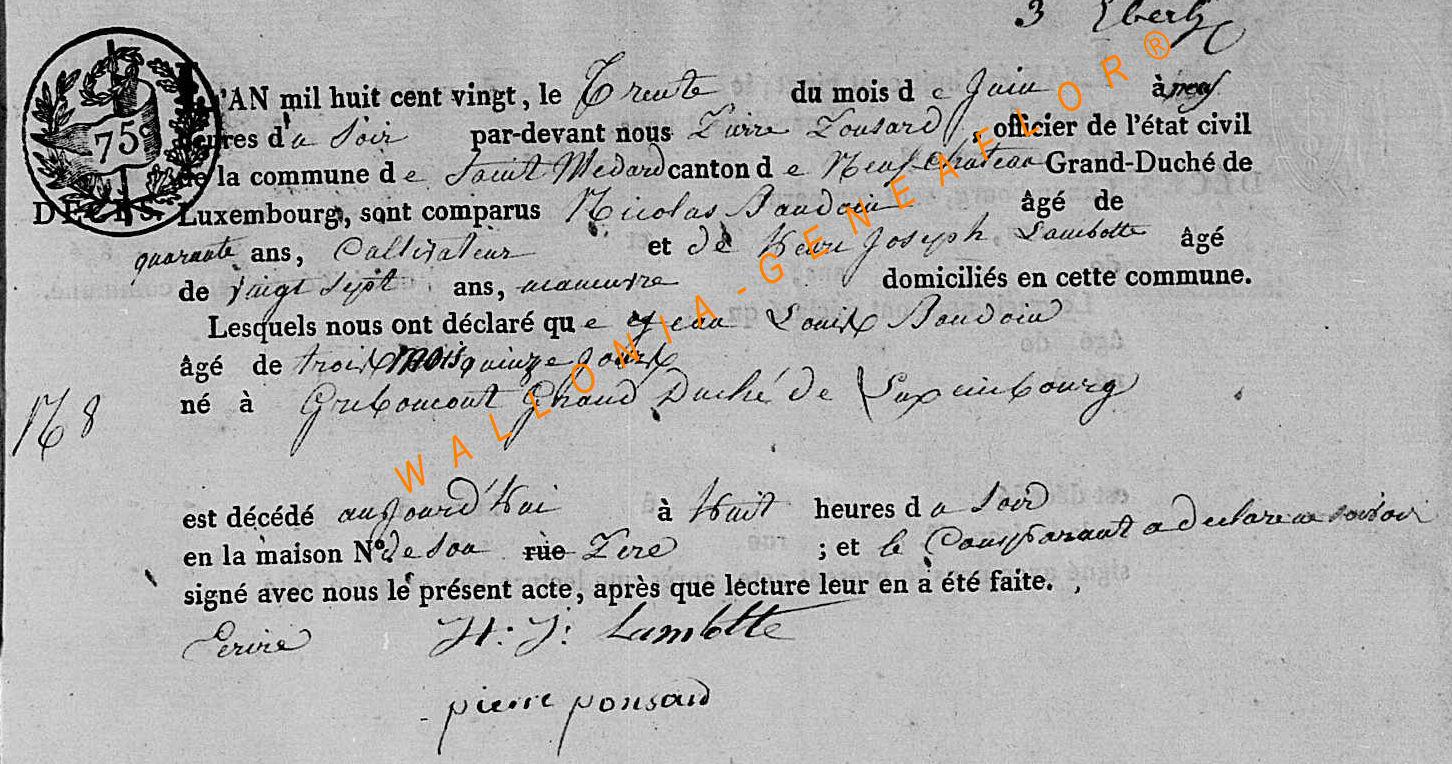 3 Ebertz
L'AN mil huit cent vingt, le Trente du mois d e Juin à neuf
heures d u Soir par-devant nous Pierre Ponsard, officier de l'état civil
de la commune d e Saint Medard canton d e Neufchateau Grand-Duché de
DÉCÈS. Luxembourg, sont comparus Nicolas Baudoin âgé de
quarante ans, Cultivateur et de Henri Joseph Lambotte âgé
de vingt sept ans, manœuvre domiciliés en cette commune.
Lesquels nous ont déclaré qu e Jean Louis Baudoin
âgé de trois mois quinze jours
né à Gribomont Grand Duché de Luxembourg
N 8
est décédé aujourd'hui à huit heures d u Soir
en la maison N° de son rue Pere ; et le Comparant a declare ne savoir
signé avec nous le présent acte, après que lecture leur en a été faite.
Ecrire H: J: Lambotte
pierre ponsard
75
WALLONIA-GENEAFLOR®